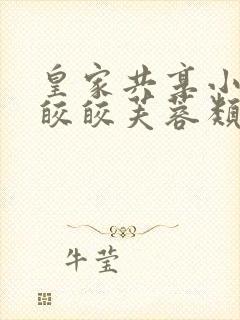 皇家共享小
皎皎芙蓉颓
牛莹